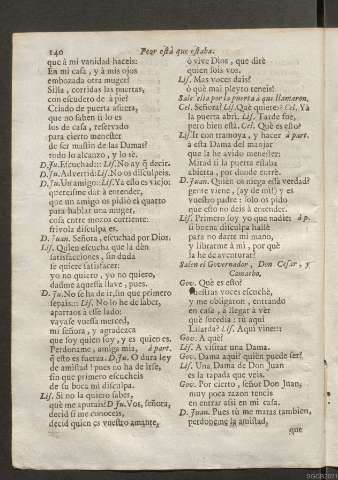 140 Peor està que estaba.
que à mi vanidad haceis:
En mi casa, y à mis ojos
embozada otra muger!
Silla, corridas las puertas,
con escudero de à pie!
Criado de puerta afuera,
que no saben si lo es
los de casa, reservado
para cierto menester
de ser mastin de las Damas?
todo lo alcanzo, y lo sè.
D.Ju. Escuchad:: Lis. No ay q̃ decir.
D.Ju. Advertid: Lis. No os disculpeis.
D.Ju. Un amigo: Lis. Ya esso es viejo:
quereisme dàr à entender,
que un amigo os pidiò el quarto
para hablar una muger,
cosa entre mozos corriente:
frivola disculpa es.
D. Juan. Señora, escuchad por Dios.
Lis. Quien escucha que la dèn
satisfacciones, sin duda
se quiere satisfacer:
yo no quiero, yo no quiero,
dadme aquessa llave, pues.
D. Ju. No se ha de ir, sin que primero
sepais:: Lis. No lo he de saber,
apartaos à esse lado:
vayase vuessa merced,
mi señora, y agradezca
que soy quien soy, y es quien es.
Perdoname, amiga mia, à part.
ò esto es fuerza. D. Ju. O dura ley
de amistad! pues no ha de irse,
sin que primero escucheis
de su boca mi disculpa.
Lis. Si no la quiero saber,
què me apurais? D. Ju. Vos, señora,
decid si me conoceis,
decid quien es vuestro amante,
ò vive Dios, que dirè
quien sois vos.
Lis. Mas voces dais?
ò què mal pleyto teneis!
Sale Celia por la puerta à que llamaron.
Cel. Señora? Lis. Què quieres? Cel. Yà
la puerta abrì. Lis. Tarde fue,
pero bien està. Cel. Què es esto?
Lis. Ir con tramoya, y hacer à part.
à esta Dama del manjar
que la he avido menester:
Mirad si la puerta estaba
abierta, por donde entrè.
D. Juan. Quien os niega essa verdad?
gente viene, (ay de mi!) y es
vuestro padre: solo os pido
que esto no deis à entender.
Lis. Primero soy yo que nadie: à p.
si buena disculpa hallè
para no darte mi mano,
y librarme à mi, por què
la he de aventurar?
Salen el Governador, Don Cesar, y
Camacho,
Gov. Què es esto?
Vuestras voces escuchè,
y me obligaron, entrando
en casa, à llegar à vèr
què sucedia: tù aqui
Lisarda? Lis. Aqui vine::
Gov. A què?
Lis. A visitar una Dama.
Gov. Dama aqui? quièn puede ser?
Lis. Una Dama de Don Juan
es la tapada que veis.
Gov. Por cierto, señor Don Juan,
muy poca razon teneis
en entrar assi en mi casa.
D. Juan. Pues tù me matas tambien,
perdoneme la amistad,
que